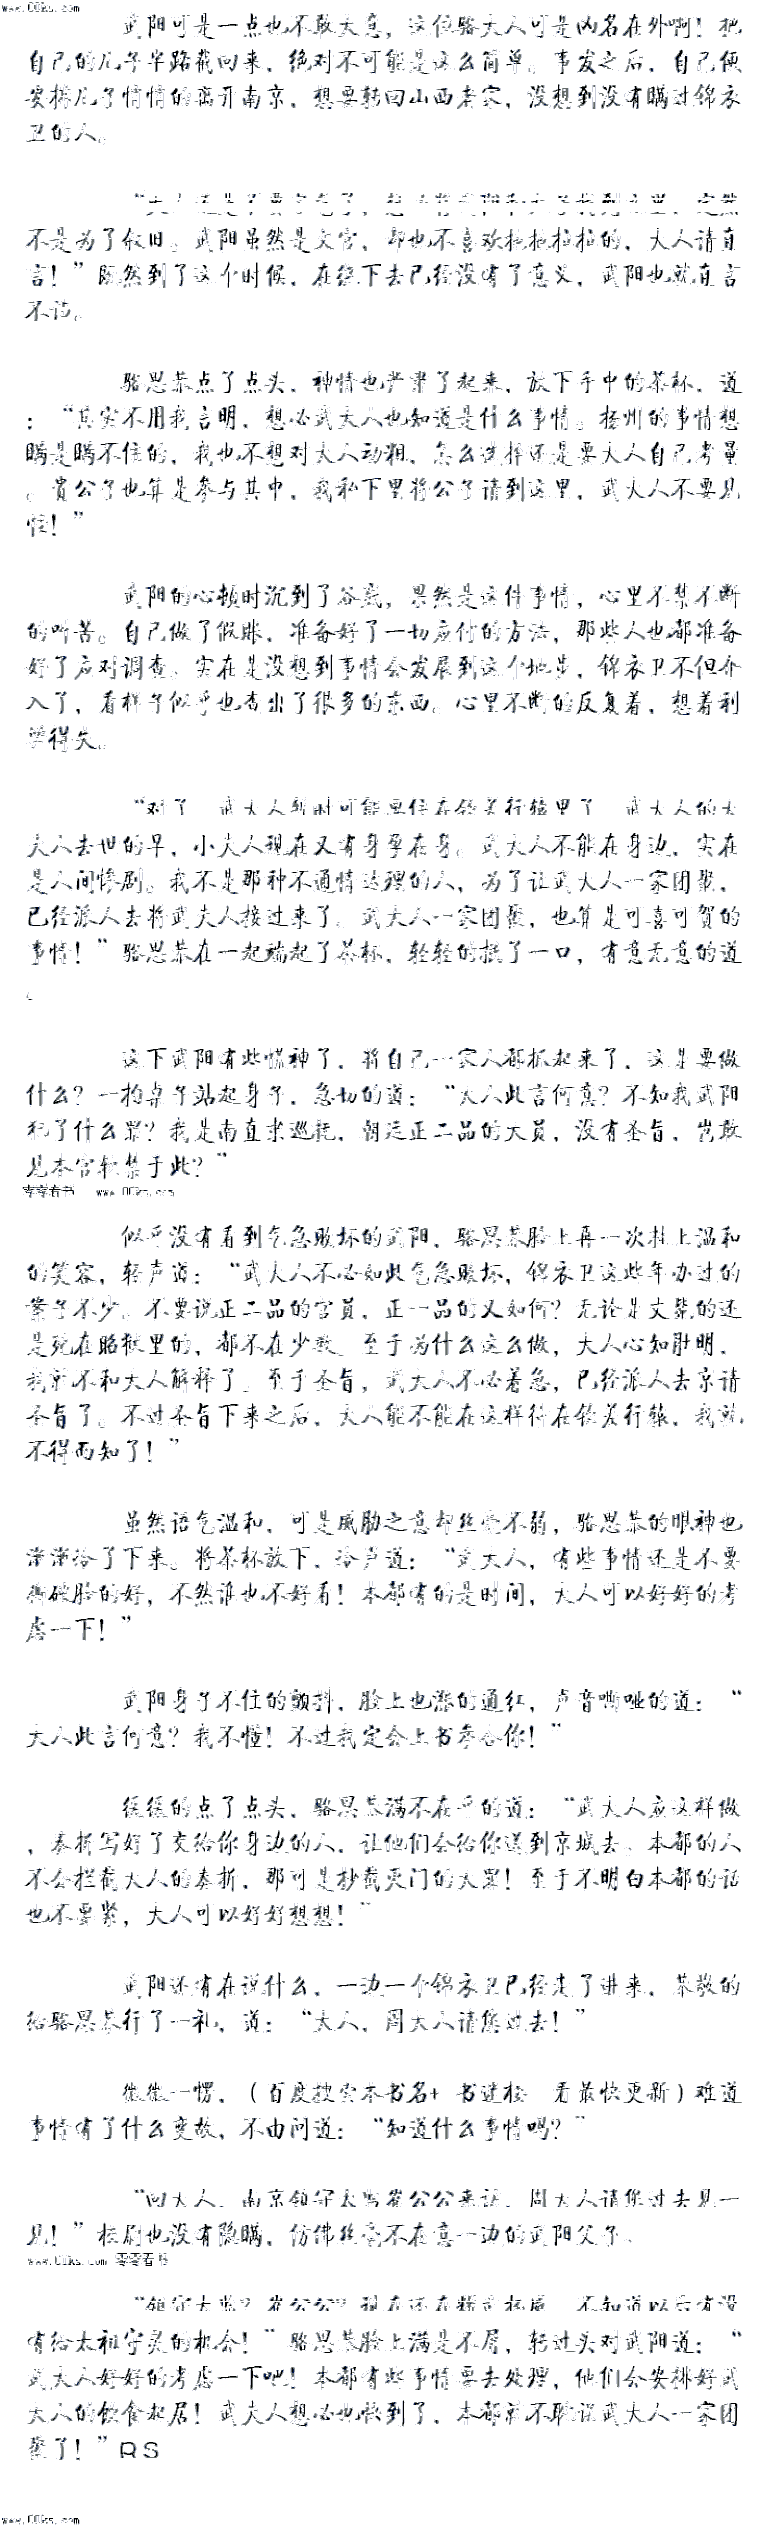 www.00ks.com
武阳可是一点也不敢大意，这位骆大人可是凶名在外啊！把
自己的儿子半路截回来，绝对不可能是这么简单。事发之后，自己便
安排儿子悄悄的离开南京，想要转回山西老家，没想到没有瞒过锦衣
卫的人。
不是为了叙旧。武阳虽然是文官，却也不喜欢拖拖拉拉的，大人请直
言！”既然到了这个时候，在绕下去已经没有了意义，武阳也就直言
不讳。
骆思恭点了点头，神情也严肃了起来，放下手中的茶杯，道
：“其实不用我言明，想必武大人也知道是什么事情。扬州的事情想
瞒是瞒不住的，我也不想对大人动粗，怎么选择还是要大人自己考量
。贵公子也算是参与其中，我私下里将公子请到这里，武大人不要见
怪！”
武阳的心顿时沉到了谷底，果然是这件事情，心里不禁不断
的叫苦。自己做了假账，准备好了一切应付的方法，那些人也都准备
好了应对调查。实在是没想到事情会发展到这个地步，锦衣卫不但介
入了，看样子似乎也查出了很多的东西。心里不断的反复着，想着利
害得失。
“对了，武大人暂时可能要住在钦差行辕里了，武大人的大
夫人去世的早，小夫人现在又有身孕在身。武大人不能在身边，实在
是人间惨剧。我不是那种不通情达理的人，为了让武大人一家团聚，
已经派人去将武夫人接过来了。武大人一家团聚，也算是可喜可贺的
事情！”骆思恭在一起端起了茶杯，轻轻的抿了一口，有意无意的道
。
这下武阳有些慌神了，将自己一家人都抓起来了，这是要做
什么？一拍桌子站起身子，急切的道：“大人此言何意？不知我武阳
犯了什么罪？我是南直隶巡抚，朝廷正二品的大员，没有圣旨，岂敢
见本官软禁于此？”
零零看书 www.00ks.com
似乎没有看到气急败坏的武阳，骆思恭脸上再一次挂上温和
的笑容，轻声道：“武大人不必如此气急败坏，锦衣卫这些年办过的
案子不少。不要说正二品的官员，正一品的又如何？无论是文楚的还
是死在昭狱里的，都不在少数。至于为什么这么做，大人心知肚明，
我就不和大人解释了。至于圣旨，武大人不必着急，已经派人去京请
圣旨了。不过圣旨下来之后，大人能不能在这样待在钦差行辕，我就
不得而知了！”
虽然语气温和，可是威胁之意却丝毫不弱，骆思恭的眼神也
渐渐冷了下来。将茶杯放下，冷声道：“武大人，有些事情还是不要
撕破脸的好，不然谁也不好看！本都有的是时间，大人可以好好的考
虑一下！”
武阳身子不住的颤抖，脸上也涨的通红，声音嘶哑的道：“
大人此言何意？我不懂！不过我定会上书参合你！”
缓缓的点了点头，骆思恭满不在乎的道：“武大人应这样做
，奏折写好了交给你身边的人，让他们会给你送到京城去。本都的人
不会拦截大人的奏折，那可是抄截灭门的大罪！至于不明白本都的话
也不要紧，大人可以好好想想！”
武阳还有在说什么，一边一个锦衣卫已经走了进来，恭敬的
给骆思恭行了一礼，道：“大人，周大人请您过去！”
微微一愣，（百度搜索本书名+ 书迷楼 看最快更新）难道
事情有了什么变故，不由问道：“知道什么事情吗？”
“回大人，南京镇守太监崔公公来访，周大人请您过去见一
见！”校尉也没有隐瞒，仿佛丝毫不在意一边的武阳父子。
www.00ks.com 零零看书
有给太祖守灵的机会！”骆思恭脸上满是不屑，转过头对武阳道：“
武大人好好的考虑一下吧！本都有些事情要去处理，他们会安排好武
大人的饮食起居！武夫人想必也快到了，本都就不耽误武大人一家团
聚了！”RS
www.00ks.com